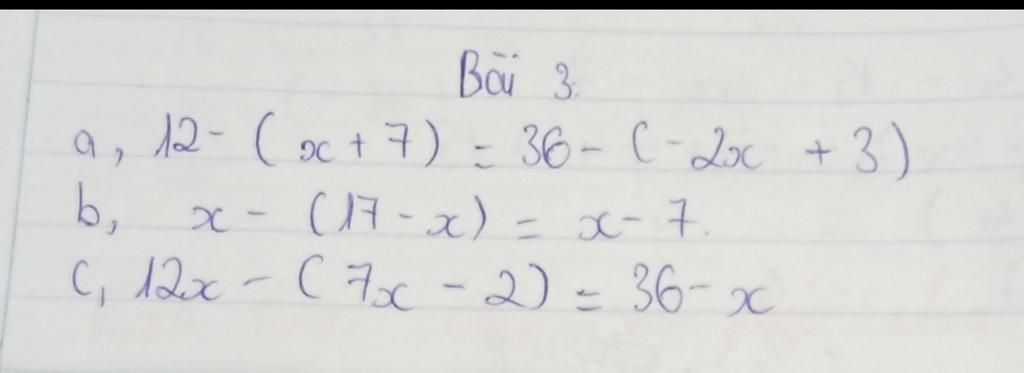 Bài 3.
a, 12 - (x + 7) = 36 - (-2x + 3)
b, x - (17 - x) = x - 7.
c, 12x - (7x - 2) = 36 - x